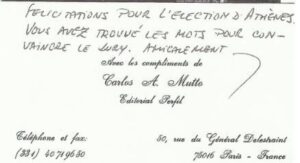 FELICITATIONS POUR L'ELECTION D'ATHÈNES.
VOUS AVEZ TROUVÉ LES MOTS POUR CON-
VAINCRE LE JURY. AMICALEMENT
Avec les compliments de
Carlos A. Mutto
Editorial Perfil
Téléphone et fax:
(331) 40719630
50, rue du Général Delestraint
75016 Paris - France